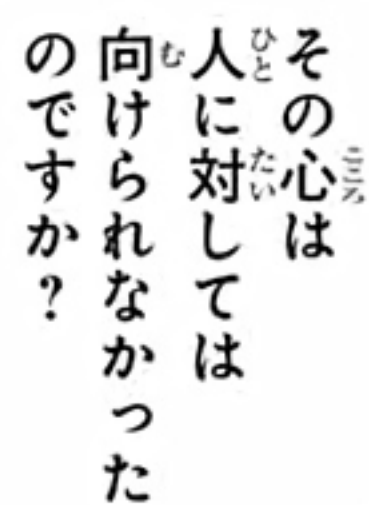 その心は
人に対しては
向けられなかった
のですか?